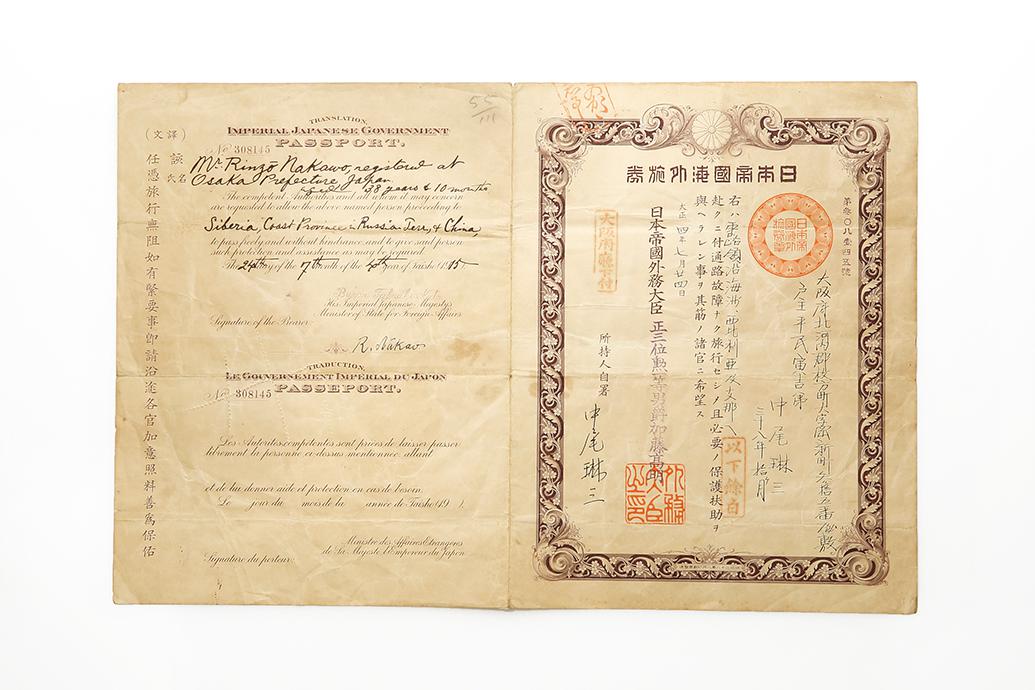 55
111
TRANSLATION.
IMPERIAL JAPANESE GOVERNMENT
PASSPORT.
No 308145
Mr. Rinzō Nakawo, registered at
Osaka Prefecture Japan
Aged 38 years & 10 months
The competent Authorities and all whom it may concern
are requested to allow the above named person proceeding to
Siberia, Coast Province in Russian Terr., & China,
to pass freely and without hindrance and to give said person
such protection and assistance as may be required.
The 24th day of the 7th month of the 4th year of Taisho (1915).
His Imperial Japanese Majesty's
Minister of State for Foreign Affairs
Signature of the Bearer:
R. Nakao
TRADUCTION.
LE GOUVERNEMENT IMPÉRIAL DU JAPON
PASSEPORT.
No 308145
Les Autorités compétentes sont priées de laisser passer
librement la personne ci-dessus mentionnée allant
et de lui donner aide et protection en cas de besoin.
Le jour du mois de la année de Taisho (19 ).
Ministre des Affaires Étrangères
de Sa Majesté l'Empereur du Japon
Signature du porteur:
(譯文)
該氏名
任憑旅行無阻如有緊要事卽請沿途各官加意照料善爲保佑
日本帝國海外旅券
第參〇八壹四五號
日本帝國海外旅券章
戶主平民
中尾琳三
三十八年拾月
右ハ露領沿海洲、西利亞及支那へ
赴クニ付通路故障ナク旅行セシメ且必要ノ保護扶助ヲ
與ヘラレン事ヲ其筋ノ諸官ニ希望ス
以下餘白
大正四年七月廿四日
大阪府廳下付
日本帝國外務大臣 正三位勲一等男爵加藤高明
外務大臣之印
所持人自署
中尾琳三